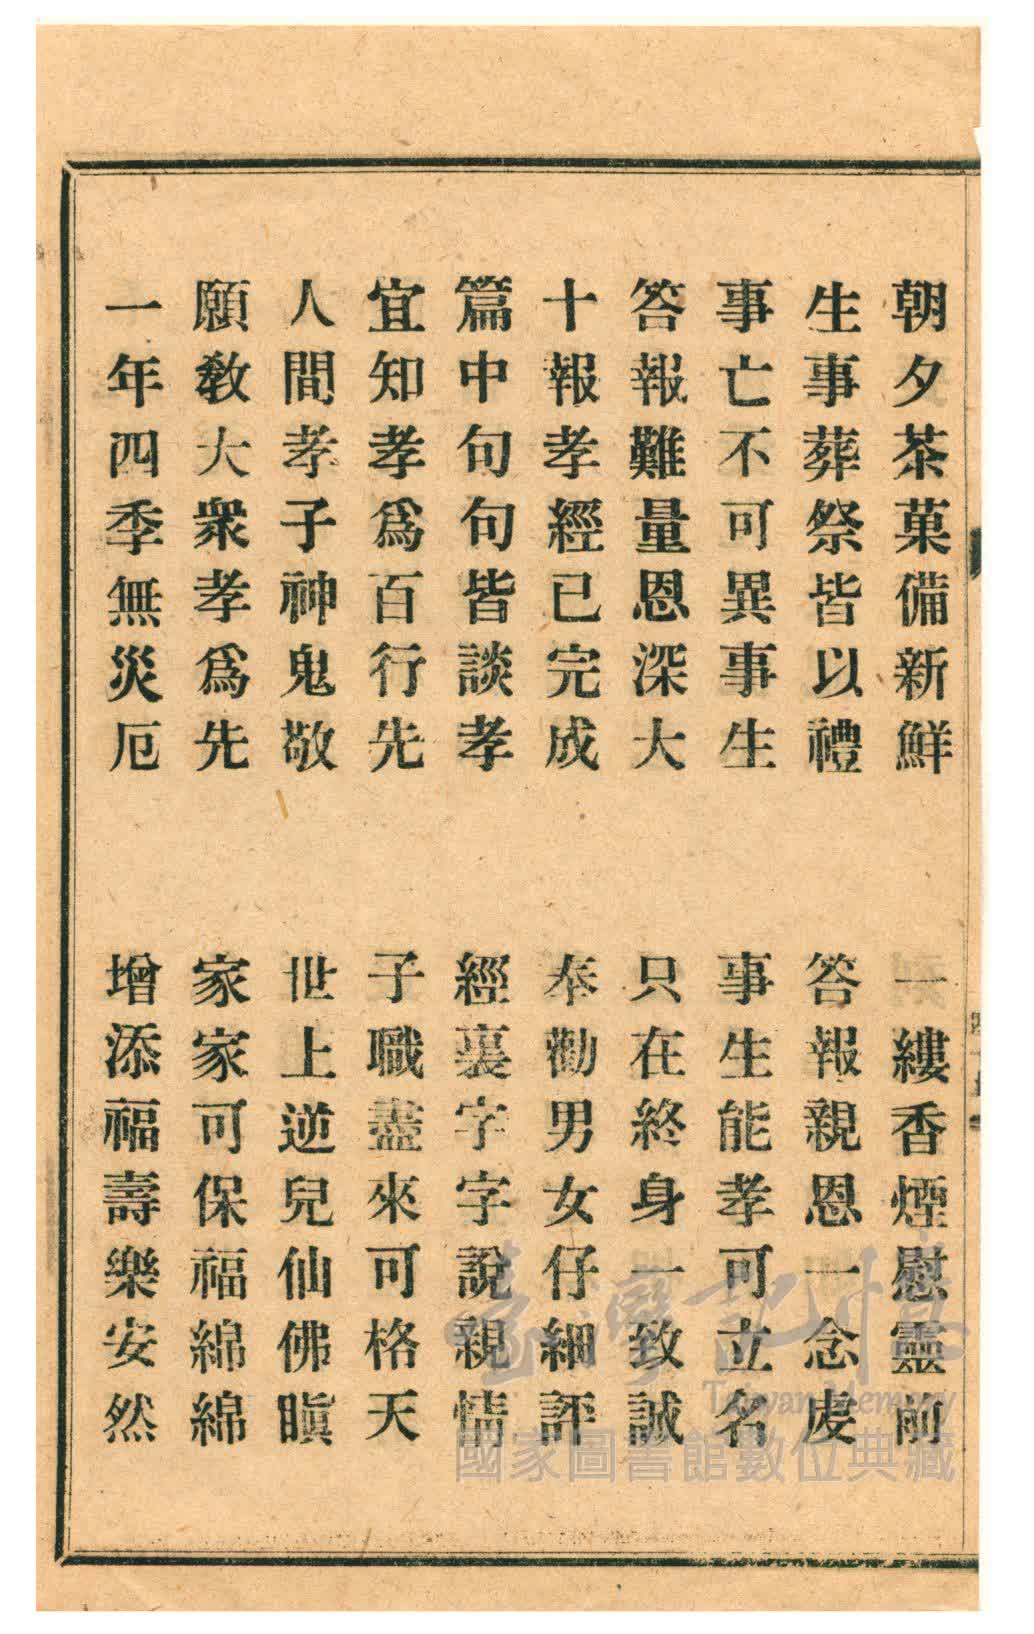 朝夕茶菓備新鮮　一縷香煙慰靈前
生事葬祭皆以禮　答報親恩一念虔
事亡不可異事生　事生能孝可立名
答報難量恩深大　只在終身一致誠
十報孝經已完成　奉勸男女仔細評
篇中句句皆談孝　經裏字字說親情
宜知孝爲百行先　子職盡來可格天
人間孝子神鬼敬　世上逆兒仙佛瞋
願教大衆孝爲先　家家可保福綿綿
一年四季無災厄　增添福壽樂安然
臺灣記憶
Taiwan Memory
國家圖書館數位典藏